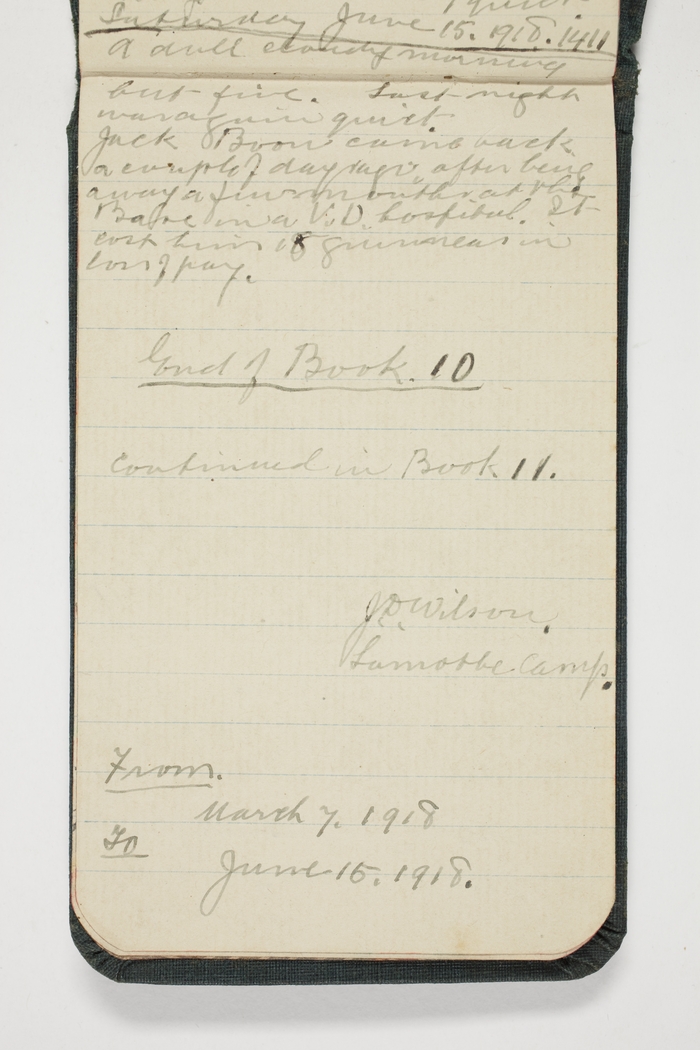 quiet.
Saturday June 15. 1918. 1411
A dull cloudy morning
but fine. Last night
was again quiet.
Jack Boon came back
a couple of days ago, after being
away a few months at the
Base in a V.D. hospital. It
cost him 18 guineas in
loss of pay.
End of Book. 10
continued in Book 11.
J.D. Wilson.
Lamotte Camp.
From.
March 7. 1918
To
June 15. 1918.